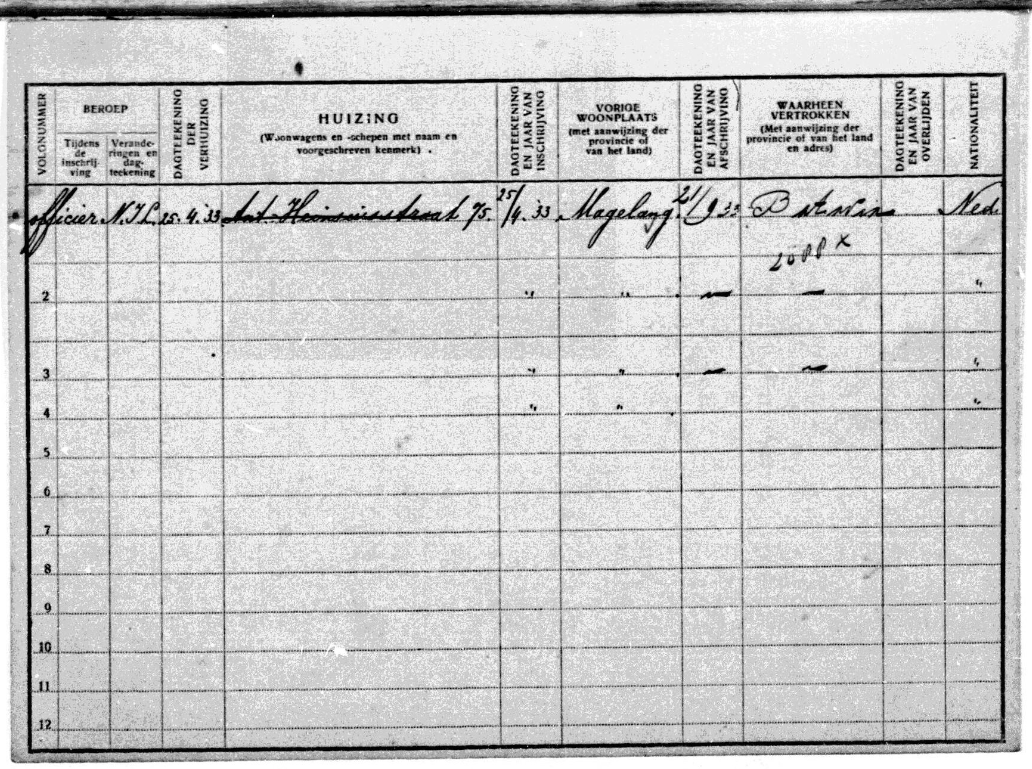 VOLGNUMMER
BEROEP
Tijdens de inschrij-ving
Verande-ringen en dag-teekening
DAGTEEKENING DER VERHUIZING
HUIZING
(Woonwagens en -schepen met naam en voorgeschreven kenmerk) .
DAGTEEKENING EN JAAR VAN INSCHRIJVING
VORIGE WOONPLAATS
(met aanwijzing der provincie of van het land)
DAGTEEKENING EN JAAR VAN AFSCHRIJVING
WAARHEEN VERTROKKEN
(Met aanwijzing der provincie of van het land en adres)
DAGTEEKENING EN JAAR VAN OVERLIJDEN
NATIONALITEIT
officier N.I.L. 25. 4. 33 Ant. Heinsiusstraat 75. 25/4. 33 Magelang. 21/9 33 Batavia Ned.
2 " " — — "
3 " " — — "
4 " " "
5
6
7
8
9
10
11
12